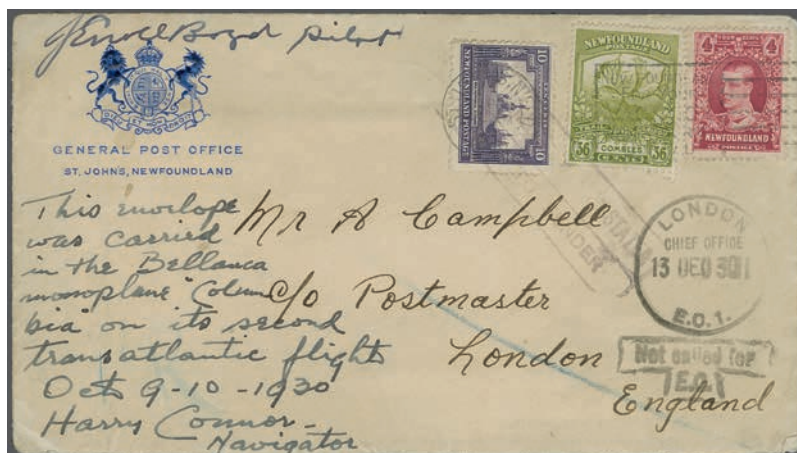 J Errol Boyd pilot
GENERAL POST OFFICE
ST. JOHNS, NEWFOUNDLAND
10 10
NEWFOUNDLAND POSTAGE
NEWFOUNDLAND
POSTAGE
COMBLES
36 CENTS 36
4 4
NEWFOUNDLAND
POSTAGE
This envelope
was carried
in the Bellanca
monoplane "Colum
bia" on its second
transatlantic flight
Oct 9-10-1930
Harry Connor-
Navigator
Mr A Campbell
c/o Postmaster
London
England
LONDON
CHIEF OFFICE
13 DE 30
E.C.1.
Not called for
E.C.1